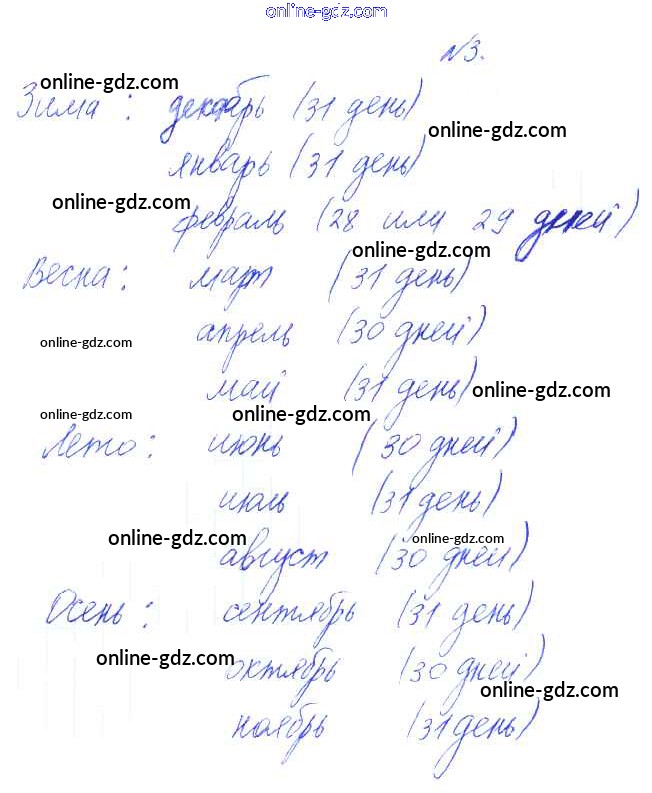 online-gdz.com
№3.
online-gdz.com
Зима: декабрь (31 день)
online-gdz.com
январь (31 день)
online-gdz.com
февраль (28 или 29 дней)
online-gdz.com
Весна: март (31 день)
апрель (30 дней)
online-gdz.com
май (31 день)
online-gdz.com
online-gdz.com
online-gdz.com
Лето: июнь (30 дней)
июль (31 день)
online-gdz.com
online-gdz.com
август (30 дней)
Осень: сентябрь (31 день)
online-gdz.com
октябрь (30 дней)
online-gdz.com
ноябрь (31 день)